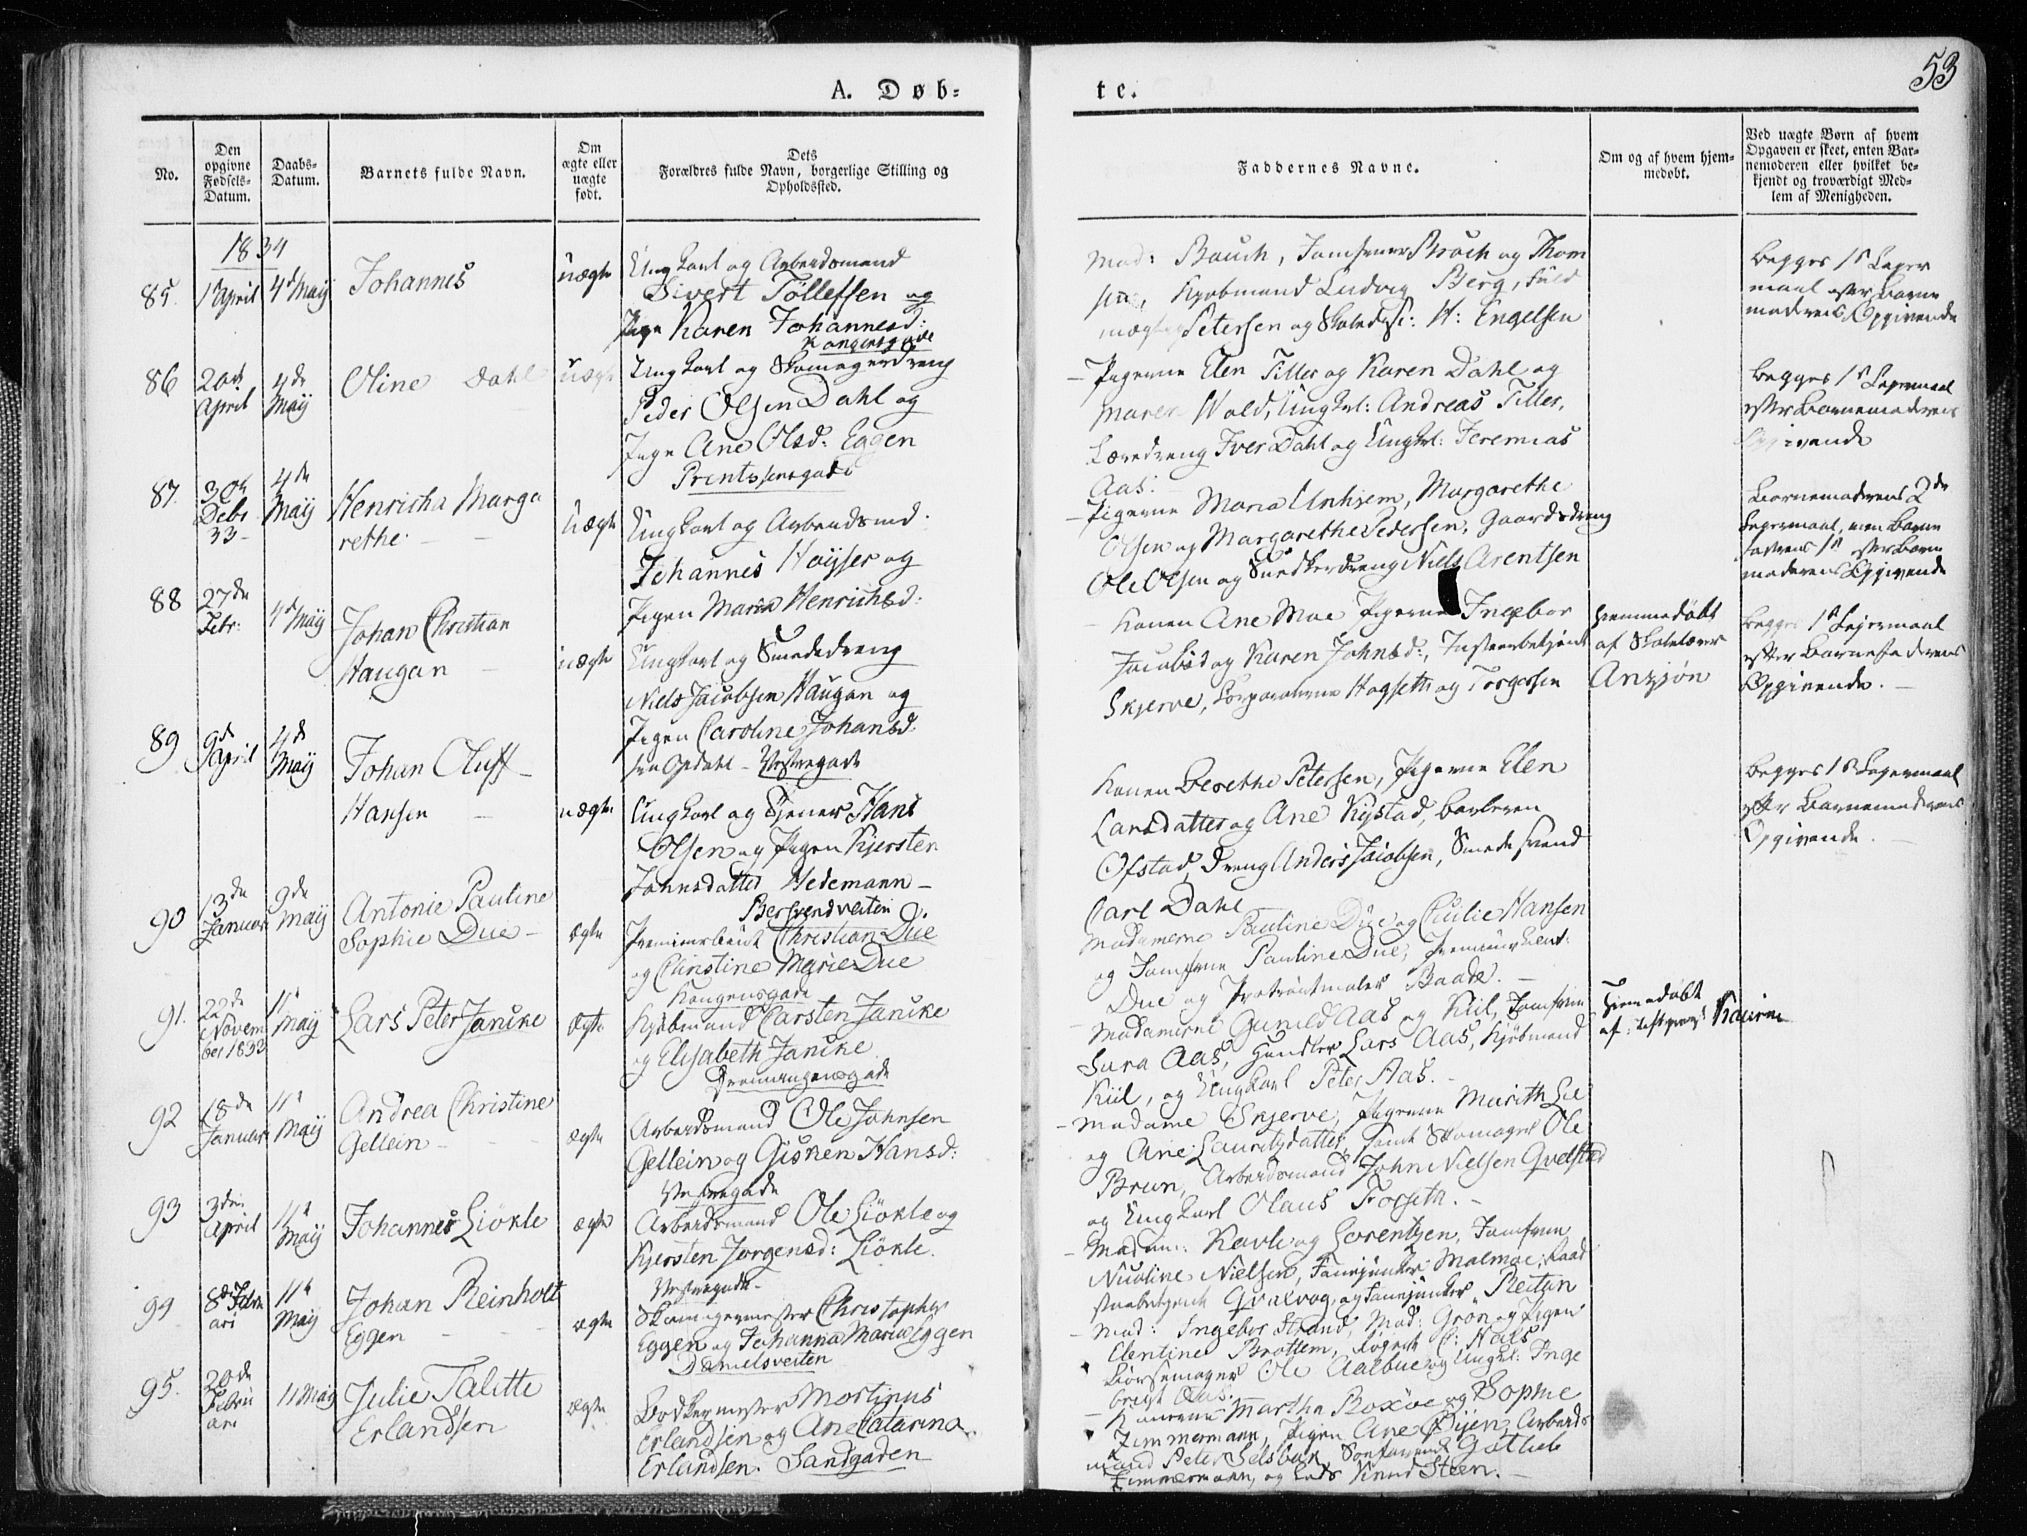 53
A. Døb-
te.
No.
Den opgivne Fødsels-Datum.
Daabs-Datum.
Barnets fulde Navn.
Om ægte eller uægte født.
Dets Forældres fulde Navn, borgerlige Stilling og Opholdssted.
Faddernes Navne.
Om og af hvem hjem-
medøbt.
Ved uægte Børn af hvem
Opgaven er skeet, enten Bar-
nemoderen eller hvilket be-
kjendt og troværdigt Med-
lem af Menigheden.
1834
85. 1 April 4d Maij Johannes uægte
Ungkarl og Arbeidsmand
Sivert Tøllefsen og
Pige Karen Johannesd:
Kongensgade
Mad: Bauck, Jomfruer Brock og Thom
sen, Kjøbmand Ludvig Berg, Fuld
mægtig Petersen og H: Engelsen
Begges 1s Leier
maal efter Barne
moderens Opgivende
86 20de April 4de Maij Oline Dahl uægte
Ungkarl og Skomagerdreng
Peder Olsen Dahl og
Pige Ane Olsd: Eggen
Printssensgade
Pigerne Elen Tiller og Karen Dahl og
Maren Wold, Ungkrl: Andreas Tiller,
Læredreng Iver Dahl og Ungkrl: Jeremias
Aas.
Begges 1s Leiermaal
efter Barnemoderens
Opgivende
87. 30th Debr 33 4de Maij Henricha Marga
rethe uægte
Ungkarl og Arbeidsmd.
Johannes Høyser og
Pigen Maria Henrichsd:
Pigerne Maria Unhjem, Margarethe
Olsen og Margarethe Pedersen, Gaardsdreng
Ole Olsen og Snedkerdreng Niels Arentsen
Barnemoderens 2de
Leiermaal, men Barne
faderens 1s efter Barne
moderens Opgivende
88 27de Febr: 4d Maij Johan Christian
Haugan uægte
Ungkarl og Smededreng
Niels Jacobsen Haugan og
Pigen Caroline Johansd:
Opdahl - Vestregade
Konen Ane Moe Pigerne Ingebor
Jacobsd og Karen Johnsd:,
Skjerve, Hogseth og Torgersen
Hjemmedøbt
af Skolelærer
Anzjøn
Begges 1s Leiermaal
efter Barnefaderens
Opgivende.
89 9d April 4de Maij Johan Oluff
Hansen uægte
Ungkarl og Tjener Hans
Olsen og Pigen Kjersten
Johnsdatter Hedemann -
Bersvendveiten
Konen Berethe Petersen, Pigerne Elen
Larsdatter og Ane Rystad, Barberer
Ofstad, Dreng Anders Jacobsen, Smedesvend
Carl Dahl
Begges 1s Leiermaal
efter Barnemoderens
Opgivende.
90 13de Januar 9de Maij Antonie Pauline
Sophie Due - ægte
Premierleut Christian Due
og Christine Marie Due
Kongensgade
Madamerne Pauline Due og Cicilie Hansen
og Jomfrue Pauline Due, Premier Lieut:
Due og Portraitmaler Baade.
91. 22de Novem
ber 1833 11t Maij Lars Peter Jancke ægte
Kjøbmand Carsten Jancke
og Elisabeth Jancke
Dronningensgade
Madamerne Gunild Aas og Kiil, Jomfrue
Sara Aas, Handler Lars Aas, Kjøbmand
Kiil, og Ungkarl Peter Aas.
Hjemedøbt
af
92 18de Januar 11t Maij Andrea Christine
Gellein ægte
Arbeidsmand Ole Johnsen
Gellein og Gisken Hansd:
Vestregade
Madame Skjerve, Pigerne Marith Lie
og Ane Lauritzdatter, samt Skomager Ole
Brun, Arbeidsmand John Nielsen Qvelstad
og Ungkarl Olaus Forseth.
93 3die April 11t Maij Johannes Liökle ægte
Arbeidsmand Ole Liökle og
Kjersten Jorgensd: Liökle.
Vestregade
Madm: Ravle og Lorentzen, Jomfrue
Nicoline Nielsen, Fanejunker Malmoe, Raad
stuebetjent Qvalvog, og Fanejunker Reitan
94 8d Febru
ari 11t Maij Johan Reinholt
Eggen ægte
Skomagermester Christopher
Eggen og Johanna Maria Eggen
Danielsveiten
Mad: Ingebor Strand, Mad: Grøn og Pigen
Elentine Brottem, C: Hals
Børsemager Ole Aalbue og Ungkl: Inge
brigt Aas.
95. 20de Febru
ari 11 Maij Julie Talitte
Erlandsen ægte
Bødkermester Mortinus
Erlandsen og Ane Catarina
Erlandsen. Sandgaden
Konerne Martha Roxøe og Sophie
Zimmermann, Pigen Ane Øijen, Arbeids
mand Peter Selsbak, Gotlieb
Zimmermann, og Knud Steen.